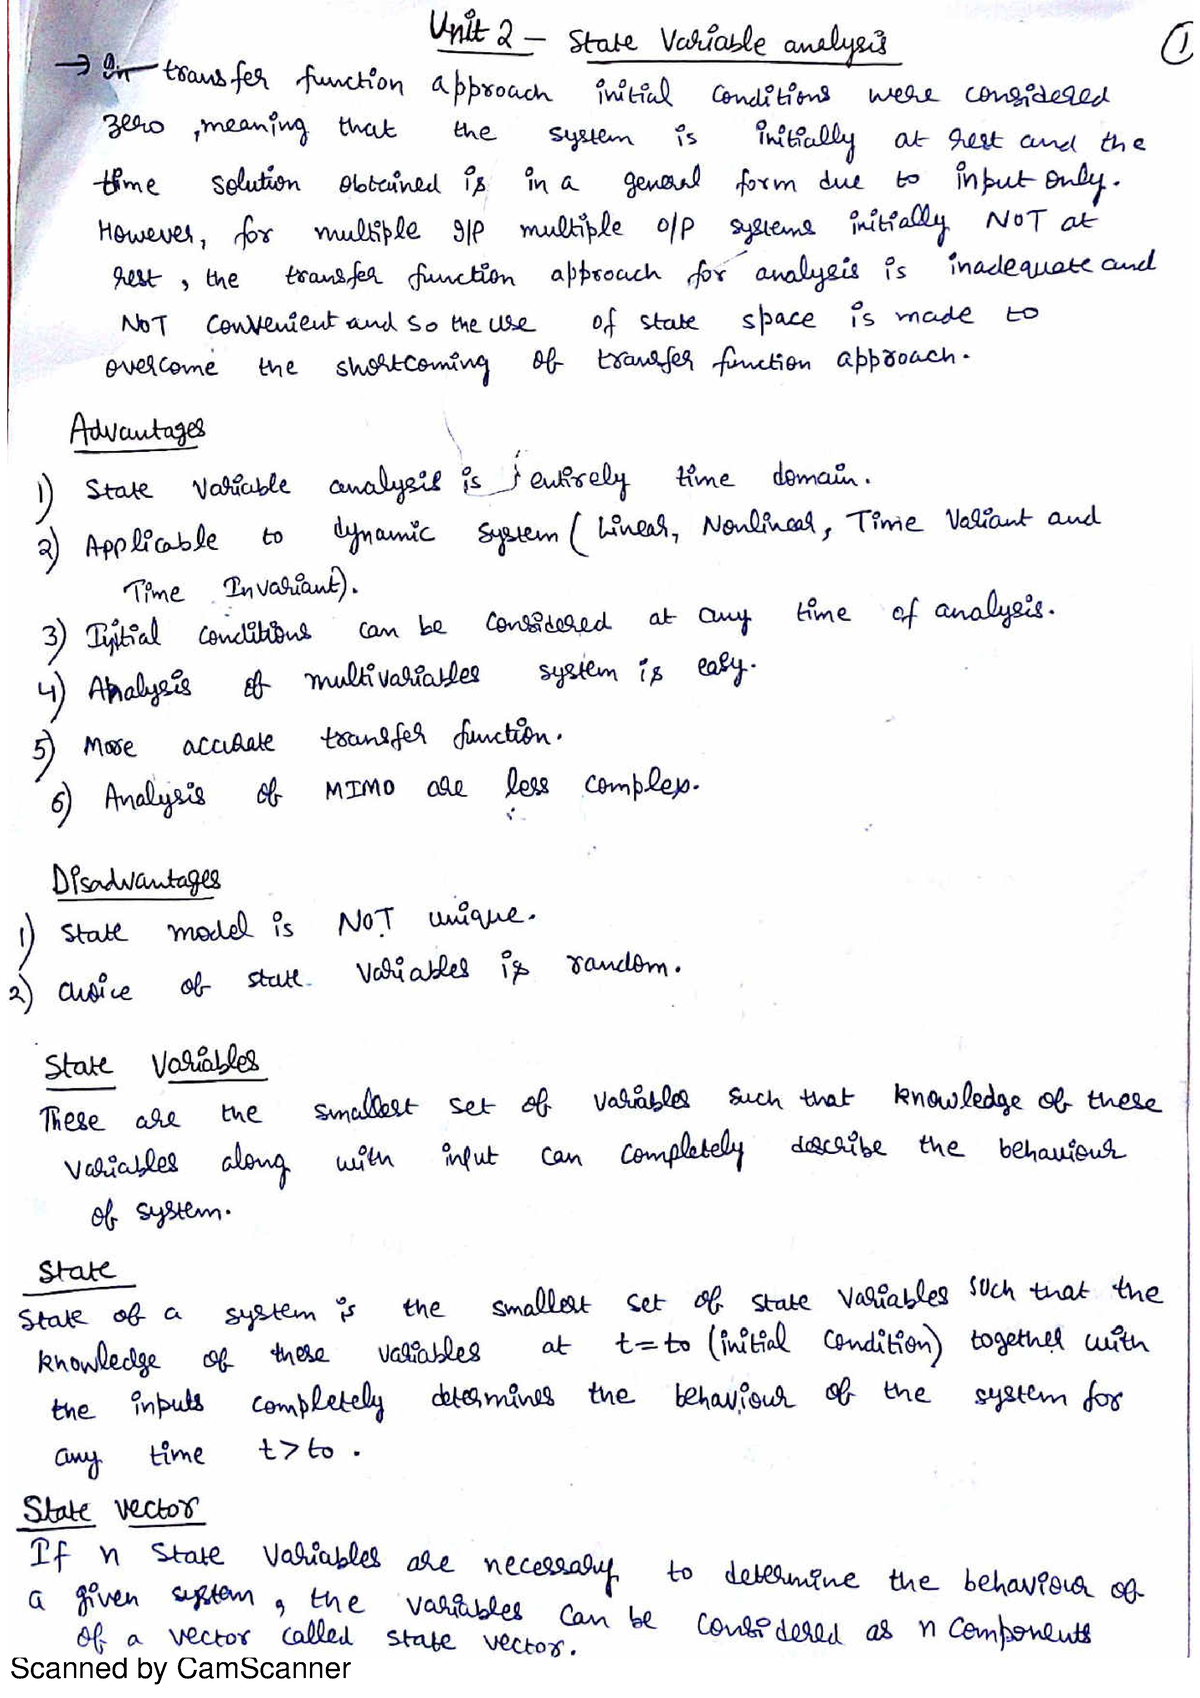 Unit 2 - State Variable analysis
1
→ In transfer function approach initial conditions were considered
zero, meaning that the system is initially at rest and the
time solution obtained is in a general form due to input only.
However, for multiple I/P multiple O/P systems initially NOT at
rest, the transfer function approach for analysis is inadequate and
NOT convenient and so the use of state space is made to
overcome the shortcoming of transfer function approach.
Advantages
1) State Variable analysis is entirely time domain.
2) Applicable to dynamic system (Linear, Nonlinear, Time Variant and
Time Invariant).
3) Initial conditions can be considered at any time of analysis.
4) Analysis of multivariables system is easy.
5) More accurate transfer function.
6) Analysis of MIMO are less complex.
Disadvantages
1) State model is NOT unique.
2) choice of state variables is random.
State Variables
These are the smallest set of variables such that knowledge of these
variables along with input can completely describe the behaviour
of system.
State
State of a system is the smallest set of state variables such that the
knowledge of these variables at t=to (initial condition) together with
the inputs completely determines the behaviour of the system for
any time t>to.
State vector
If n state variables are necessary to determine the behaviour of
a given system, the variables can be considered as n components
of a vector called state vector.
Scanned by CamScanner